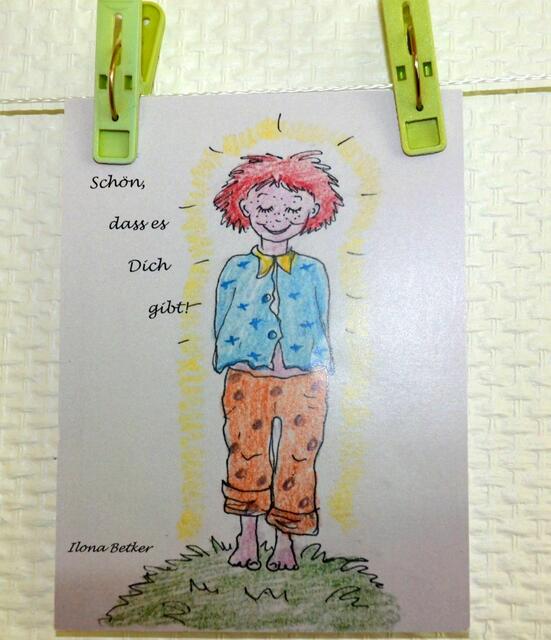 Schön,
dass es
Dich
gibt!
Ilona Betker